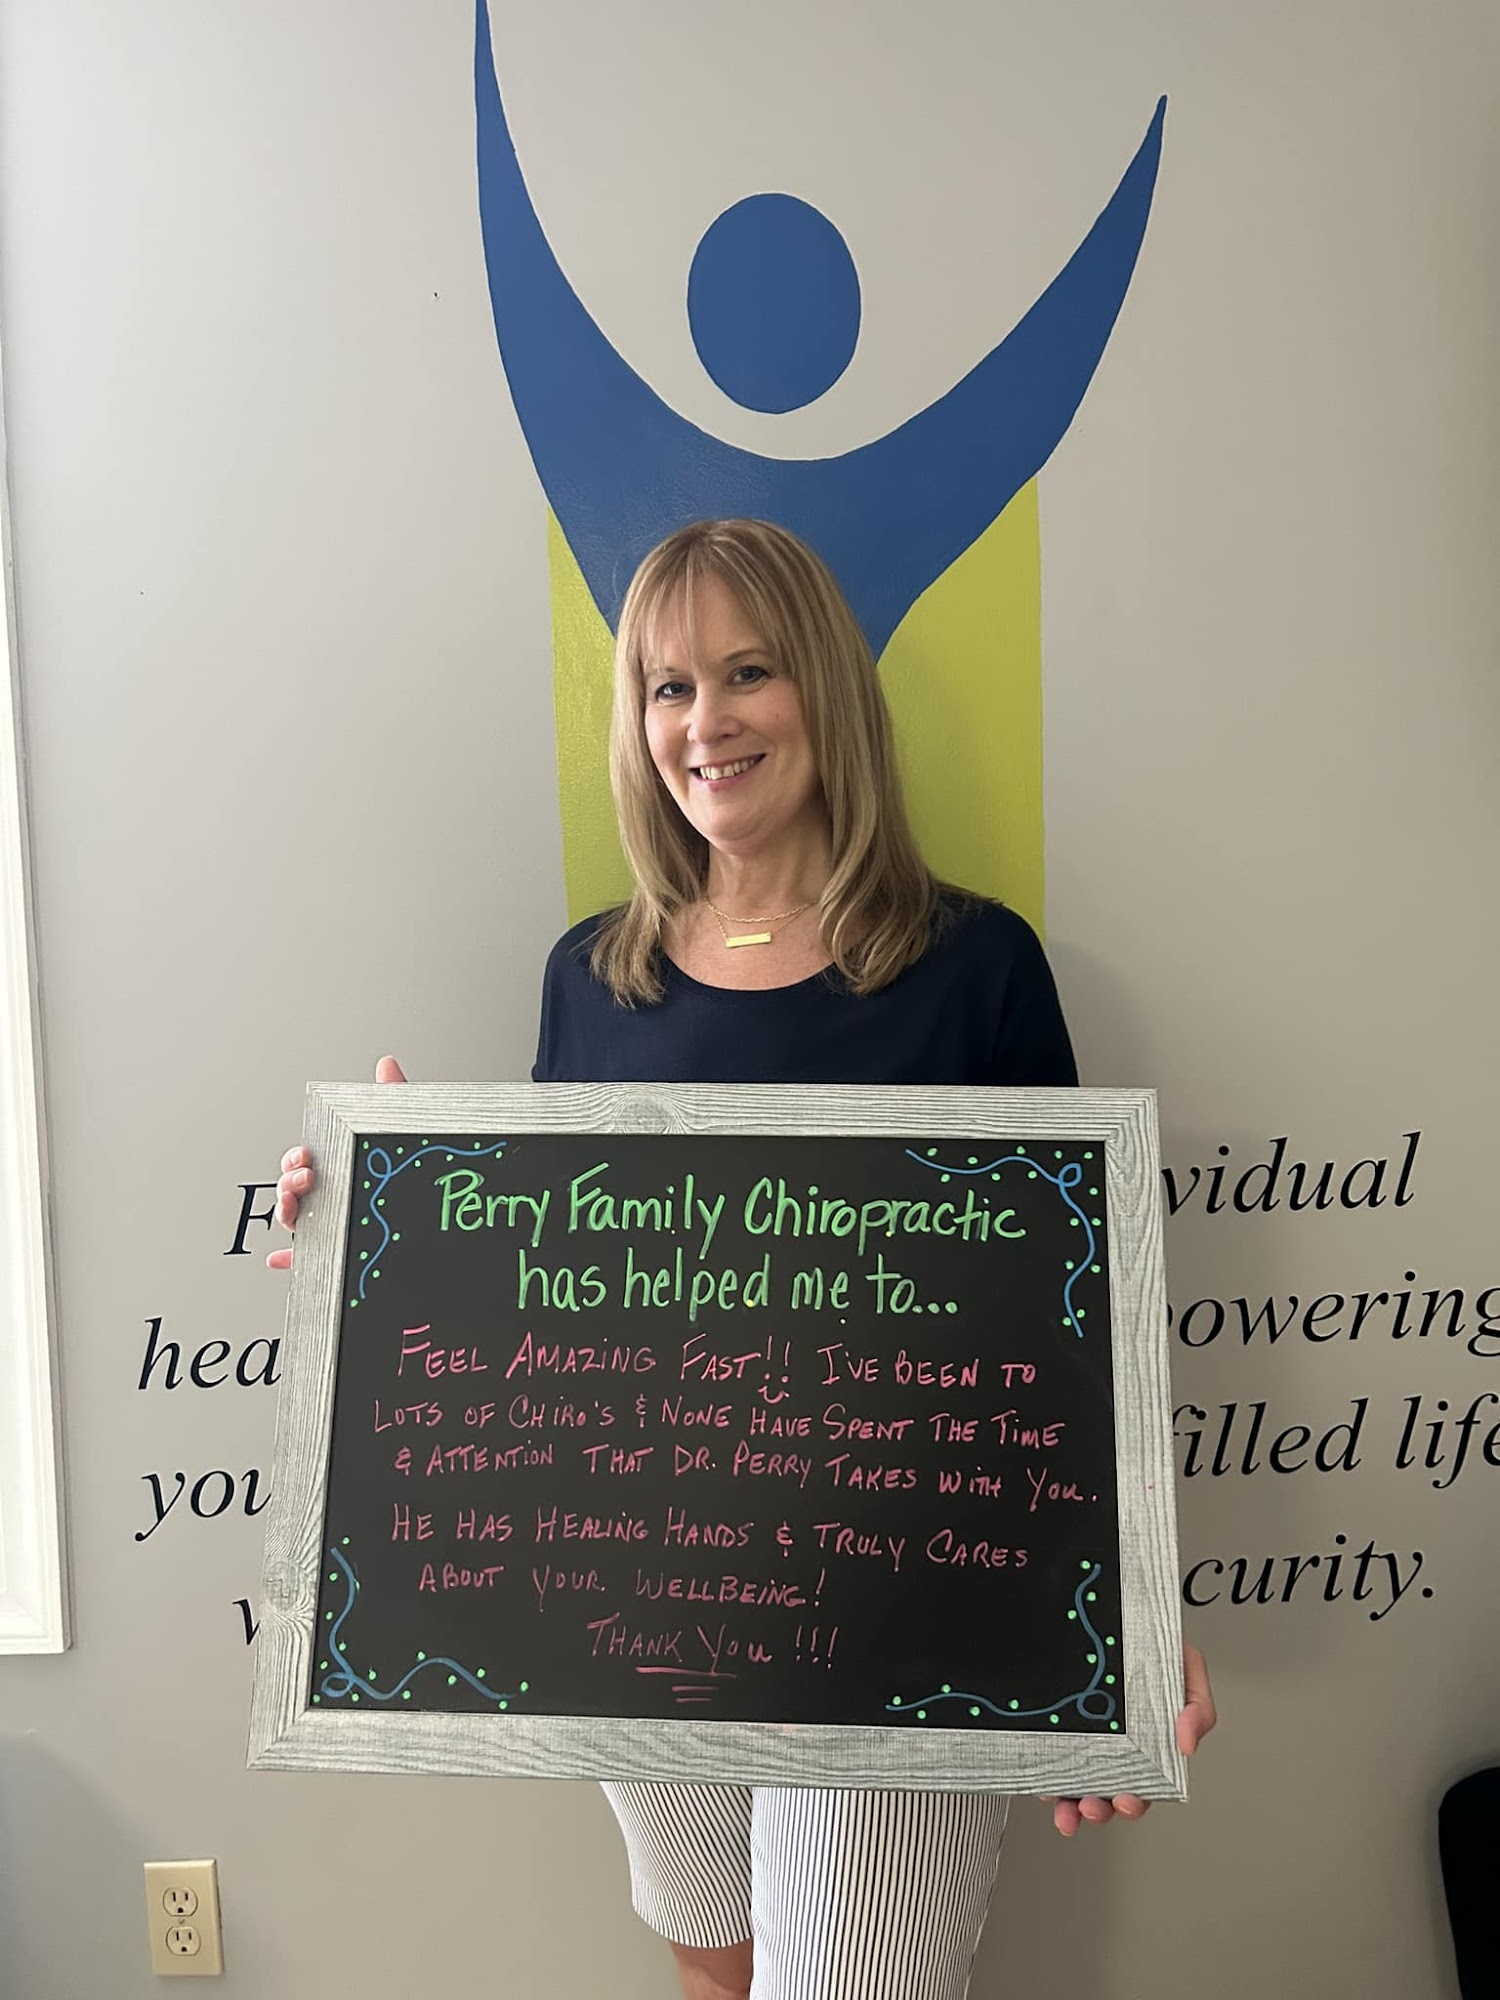 Perry Family Chiropractic
has helped me to...
FEEL AMAZING FAST!! I'VE BEEN TO
LOTS OF CHIRO'S & NONE HAVE SPENT THE TIME
& ATTENTION THAT DR. PERRY TAKES WITH YOU.
HE HAS HEALING HANDS & TRULY CARES
ABOUT YOUR WELLBEING!
THANK YOU !!!
vidual
hea powering
you filled life
curity.